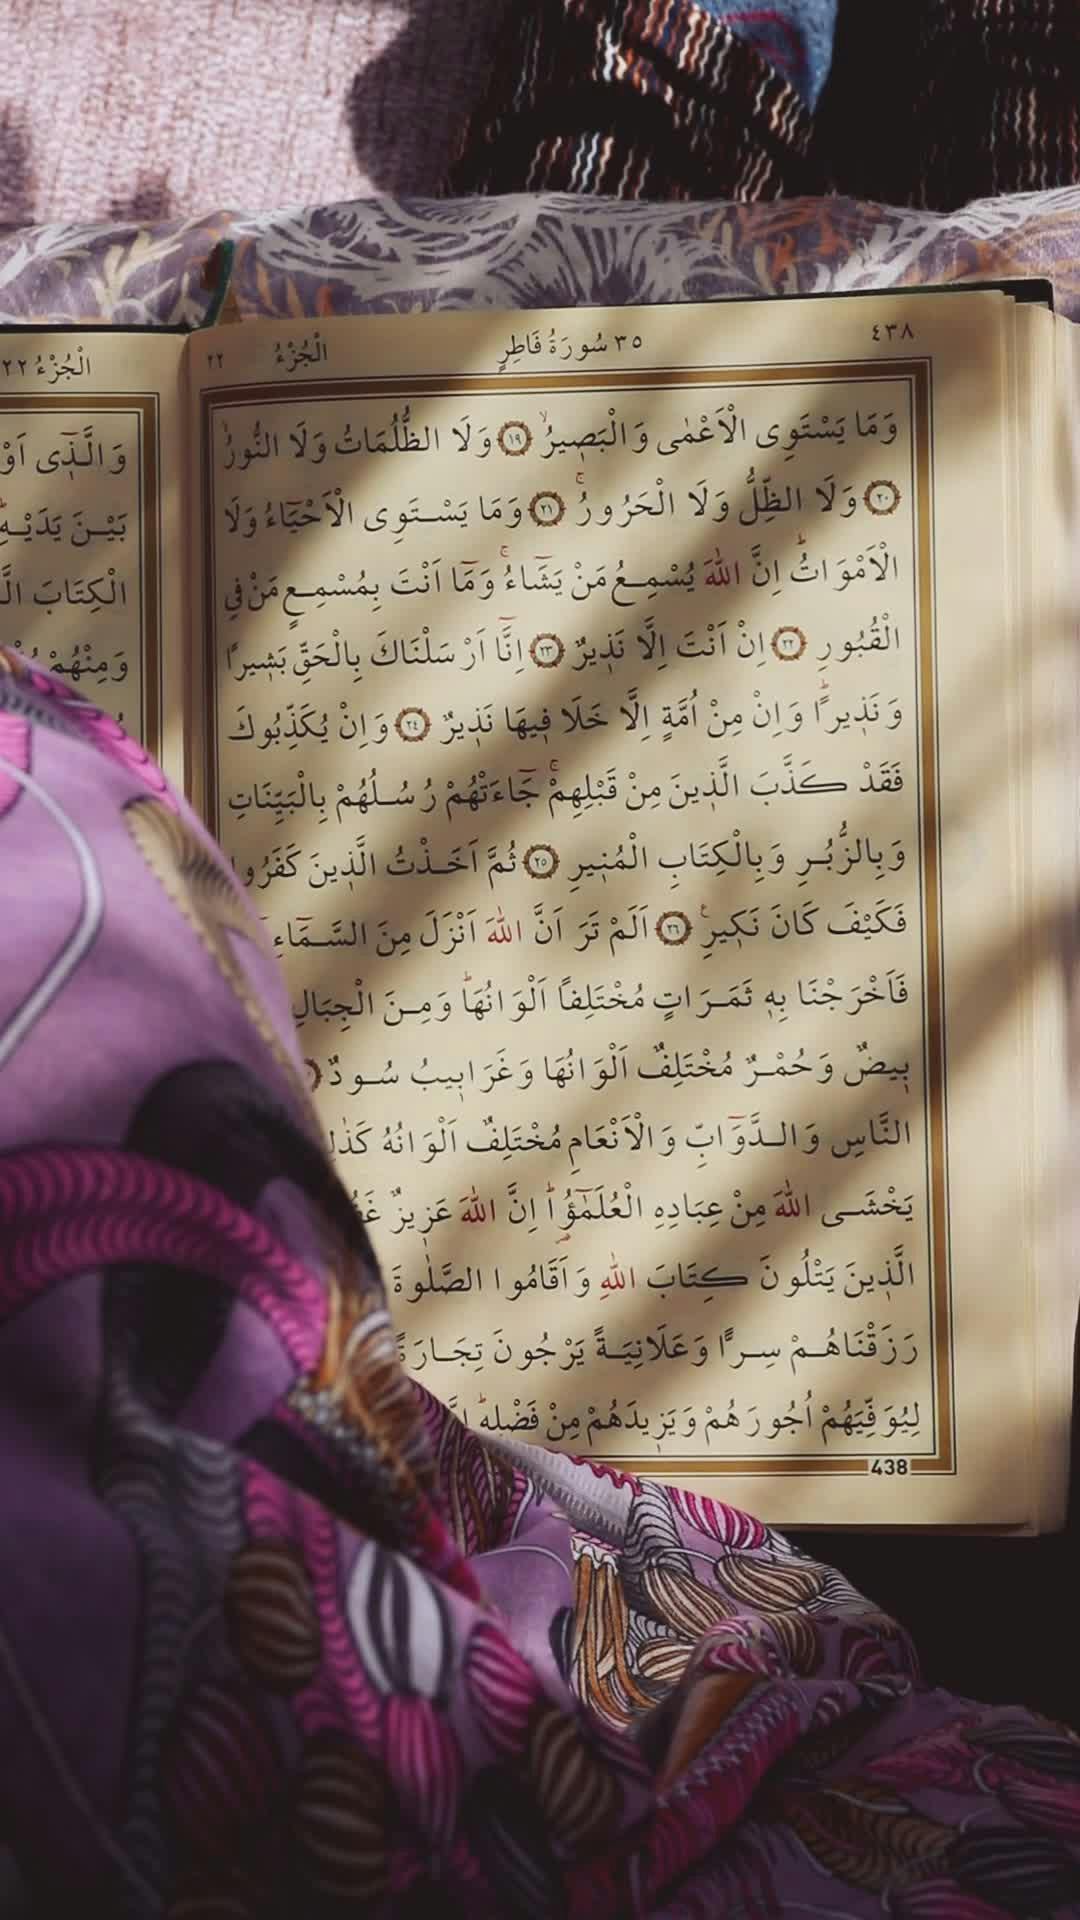 ٤٣٨
٣٥ سُورَةُ فَاطِرٍ
اَلْجُزْءُ ٢٢
وَمَا يَسْتَوِى الْاَعْمٰى وَالْبَصٖيرُۙ ﴿١٩﴾ وَلَا الظُّلُمَاتُ وَلَا النُّورُۙ
﴿٢٠﴾ وَلَا الظِّلُّ وَلَا الْحَرُورُۚ ﴿٢١﴾ وَمَا يَسْتَوِى الْاَحْيَٓاءُ وَلَا
الْاَمْوَاتُؕ اِنَّ اللّٰهَ يُسْمِعُ مَنْ يَشَٓاءُۚ وَمَٓا اَنْتَ بِمُسْمِعٍ مَنْ فِى
الْقُبُورِ ﴿٢٢﴾ اِنْ اَنْتَ اِلَّا نَذٖيرٌ ﴿٢٣﴾ اِنَّٓا اَرْسَلْنَاكَ بِالْحَقِّ بَشٖيرًا
وَنَذٖيرًاؕ وَاِنْ مِنْ اُمَّةٍ اِلَّا خَلَا فٖيهَا نَذٖيرٌ ﴿٢٤﴾ وَاِنْ يُكَذِّبُوكَ
فَقَدْ كَذَّبَ الَّذٖينَ مِنْ قَبْلِهِمْۚ جَٓاءَتْهُمْ رُسُلُهُمْ بِالْبَيِّنَاتِ
وَبِالزُّبُرِ وَبِالْكِتَابِ الْمُنٖيرِ ﴿٢٥﴾ ثُمَّ اَخَذْتُ الَّذٖينَ كَفَرُوا
فَكَيْفَ كَانَ نَكٖيرِ ﴿٢٦﴾ اَلَمْ تَرَ اَنَّ اللّٰهَ اَنْزَلَ مِنَ السَّمَٓاءِ
فَاَخْرَجْنَا بِهٖ ثَمَرَاتٍ مُخْتَلِفًا اَلْوَانُهَاؕ وَمِنَ الْجِبَالِ
بٖيضٌ وَحُمْرٌ مُخْتَلِفٌ اَلْوَانُهَا وَغَرَابٖيبُ سُودٌ
النَّاسِ وَالدَّوَٓابِّ وَالْاَنْعَامِ مُخْتَلِفٌ اَلْوَانُهُ
يَخْشَى اللّٰهَ مِنْ عِبَادِهِ الْعُلَمٰٓؤُ۬اؕ اِنَّ اللّٰهَ عَزٖيزٌ
الَّذٖينَ يَتْلُونَ كِتَابَ اللّٰهِ وَاَقَامُوا الصَّلٰوةَ
رَزَقْنَاهُمْ سِرًّا وَعَلَانِيَةً يَرْجُونَ تِجَارَةً
لِيُوَفِّيَهُمْ اُجُورَهُمْ وَيَزٖيدَهُمْ مِنْ فَضْلِهٖؕ
438
اَلْجُزْءُ ٢٢
وَالَّذٖٓى
بَيْنَ يَدَيْهِ
الْكِتَابَ
وَمِنْهُمْ